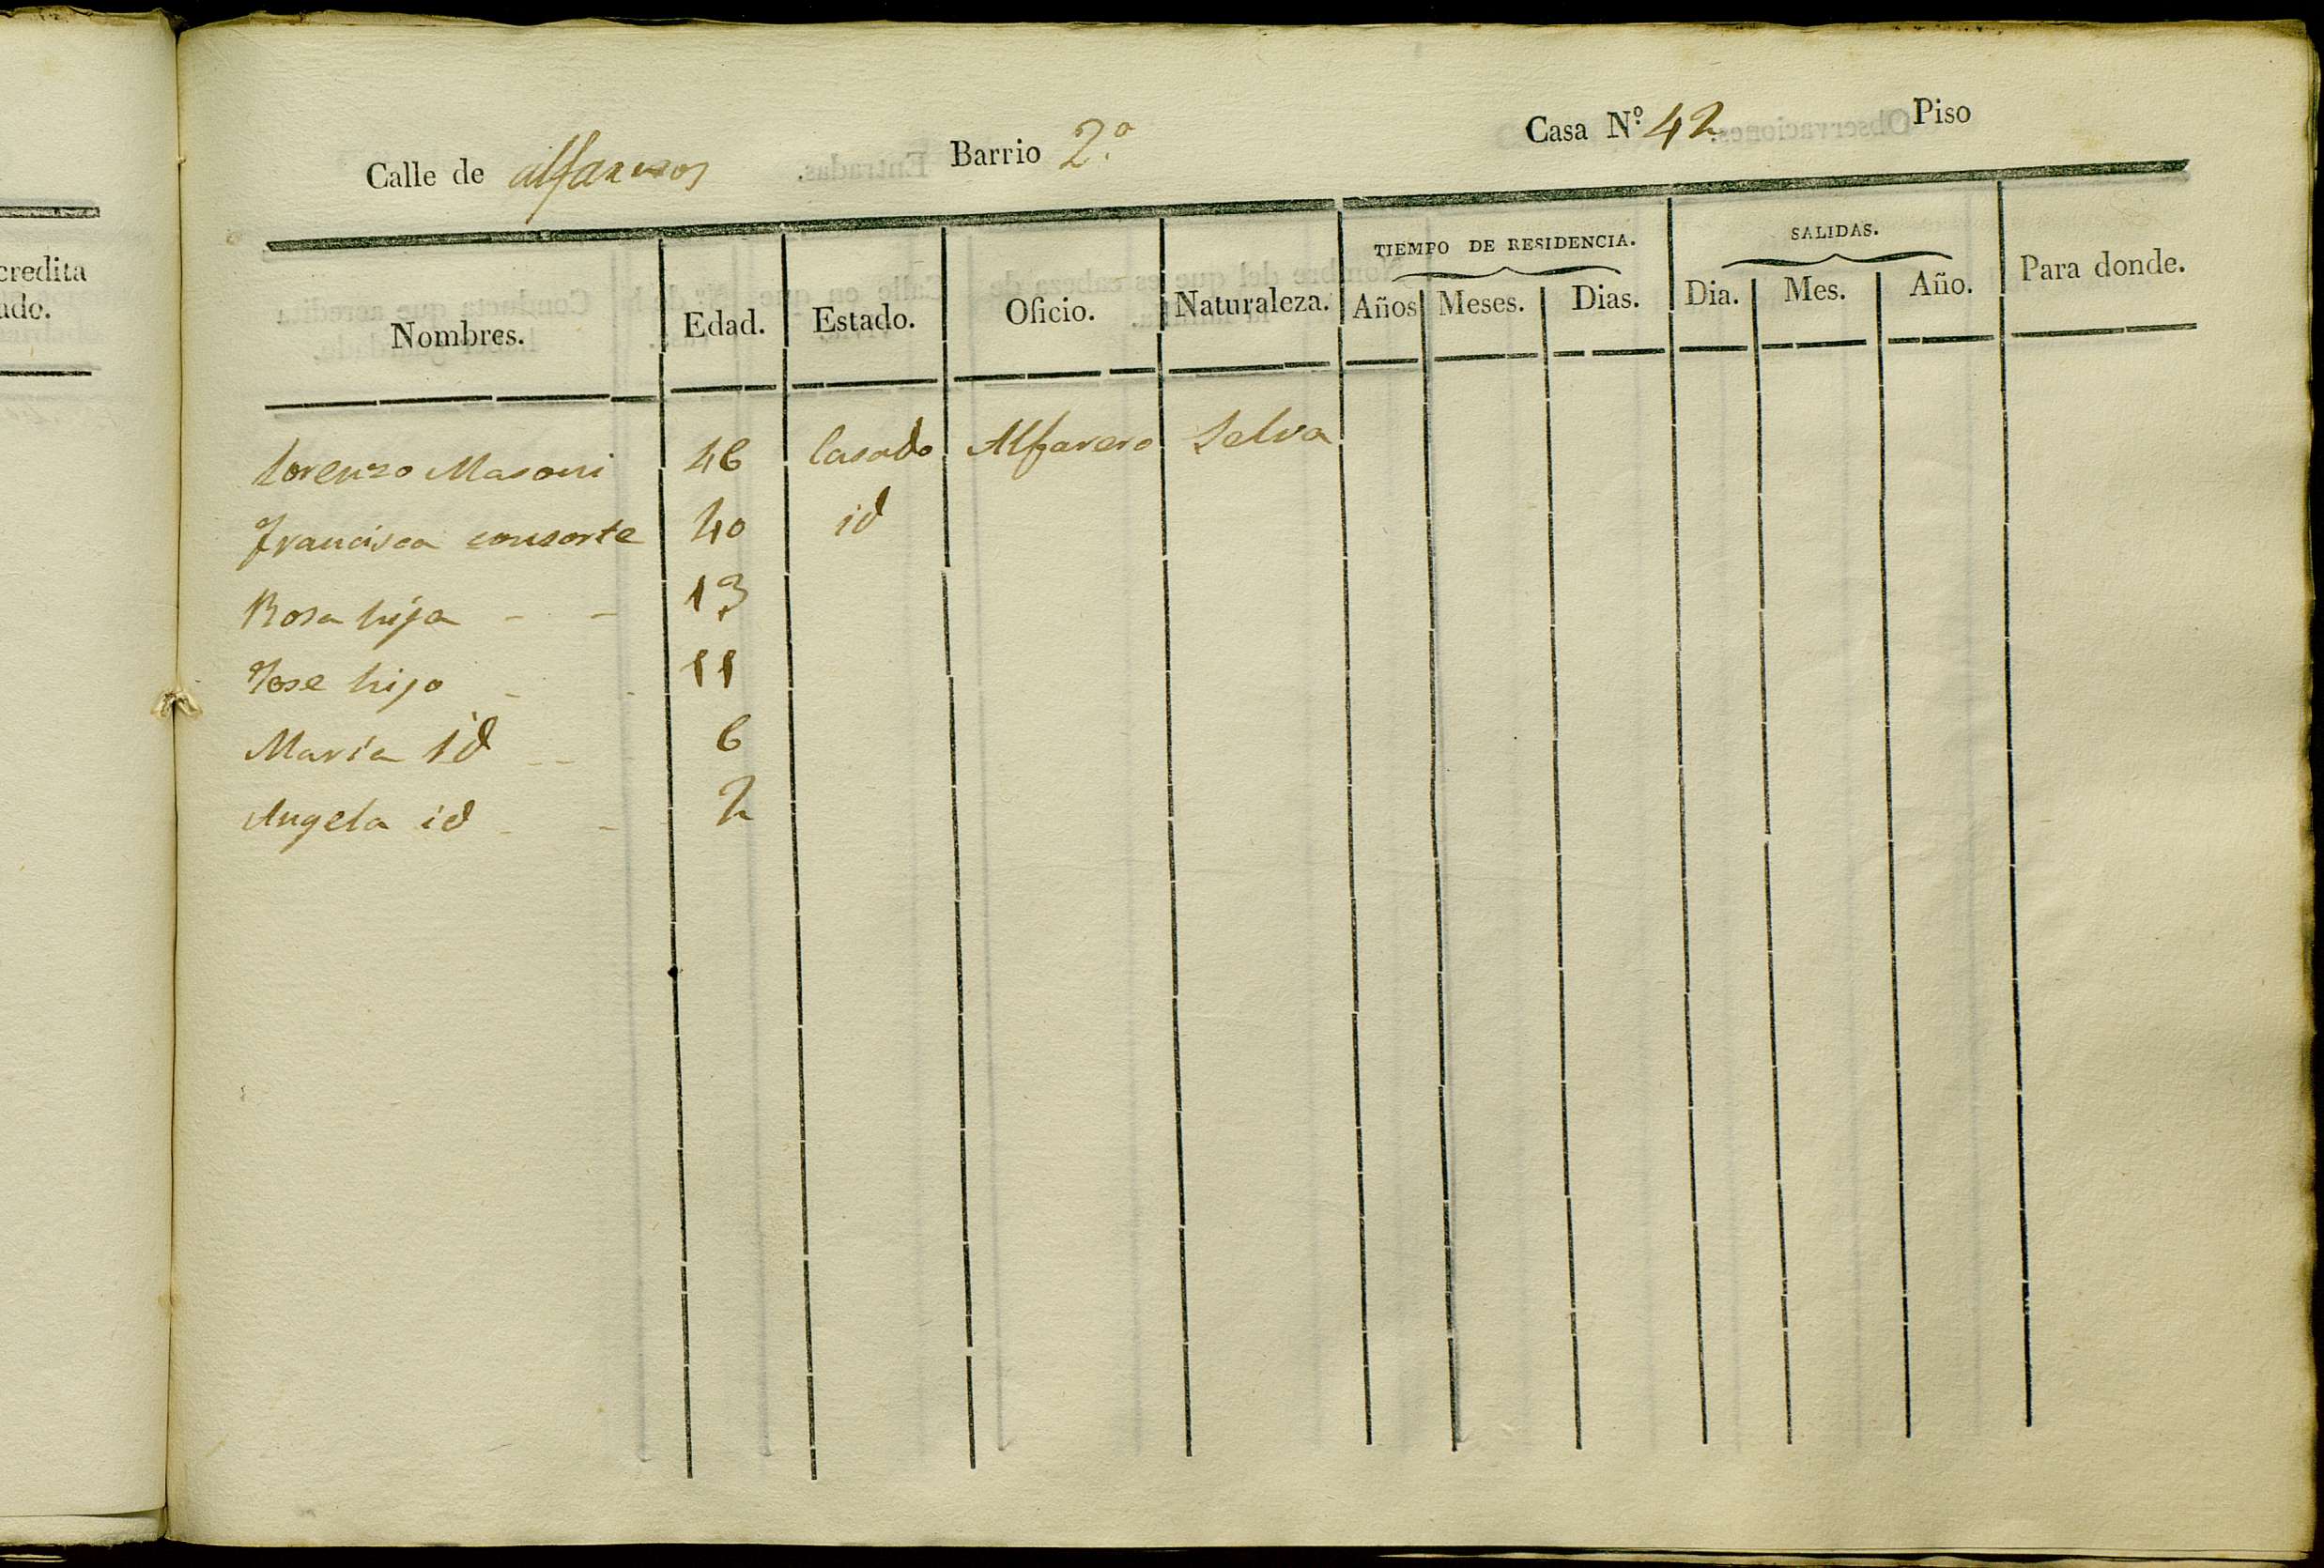 credita
ado.
Calle de alfareros Barrio 2.º Casa N.º 42 Piso
TIEMPO DE RESIDENCIA. SALIDAS.
Nombres. Edad. Estado. Oficio. Naturaleza. Años Meses. Dias. Dia. Mes. Año. Para donde.
Lorenzo Masoni 46 Casado Alfarero Selva
Francisca consorte 40 id
Rosa hija - - 13
Jose hijo - - 11
Maria id - - 6
Angela id - - 2